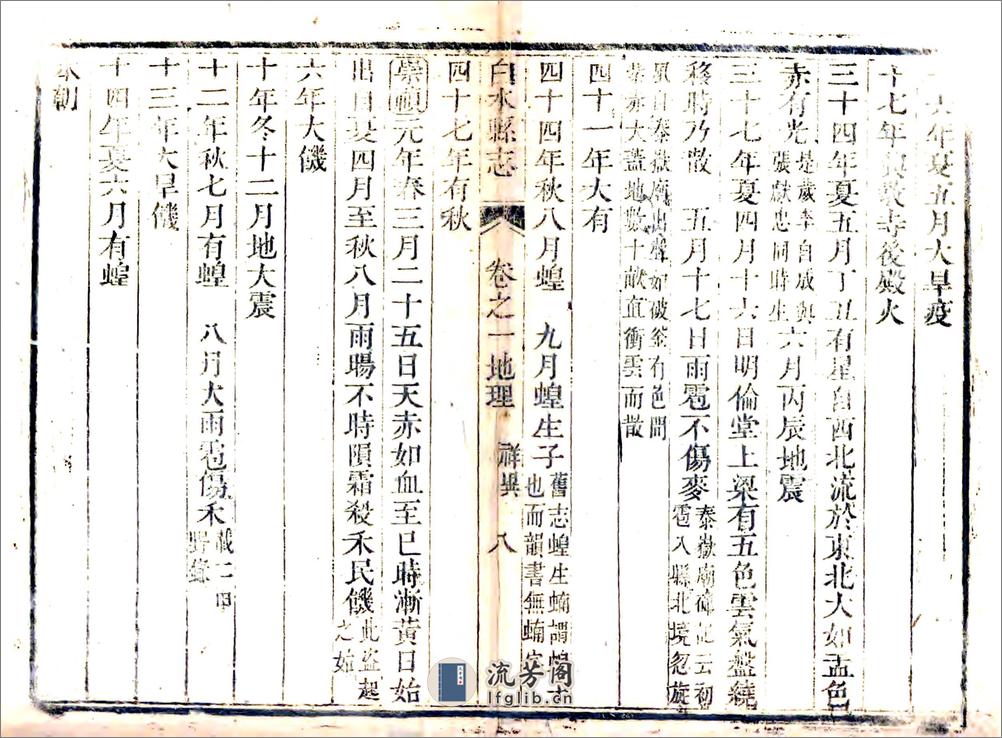 六年夏五月大旱疫
十七年興敎寺後殿火
三十四年夏五月丁丑有星自西北流於東北大如盂色
赤有光是歲李自成與張獻忠同時生六月丙辰地震
三十七年夏四月十六日明倫堂上梁有五色雲氣盤繞
移時乃散 五月十七日雨雹不傷麥泰嶽廟碑記云初雹入縣北境忽旋
風自泰嶽廟出聲如破釜有色間
赤大蓋地數十獻直衝雲而散
四十一年大有
四十四年秋八月蝗 九月蝗生子舊志蝗生蝻謂蝗也而韻書無蝻
四十七年有秋
白水縣志 卷之一 地理 祥異 八
崇禎元年春三月二十五日天赤如血至巳時漸黃日始
出日夏四月至秋八月雨暘不時隕霜殺禾民饑此盜起之始
六年大饑
十年冬十二月地大震
十二年秋七月有蝗 八月大雨雹傷禾
十三年大旱饑
十四年夏六月有蝗
本朝
流芳阁
lfglib.com